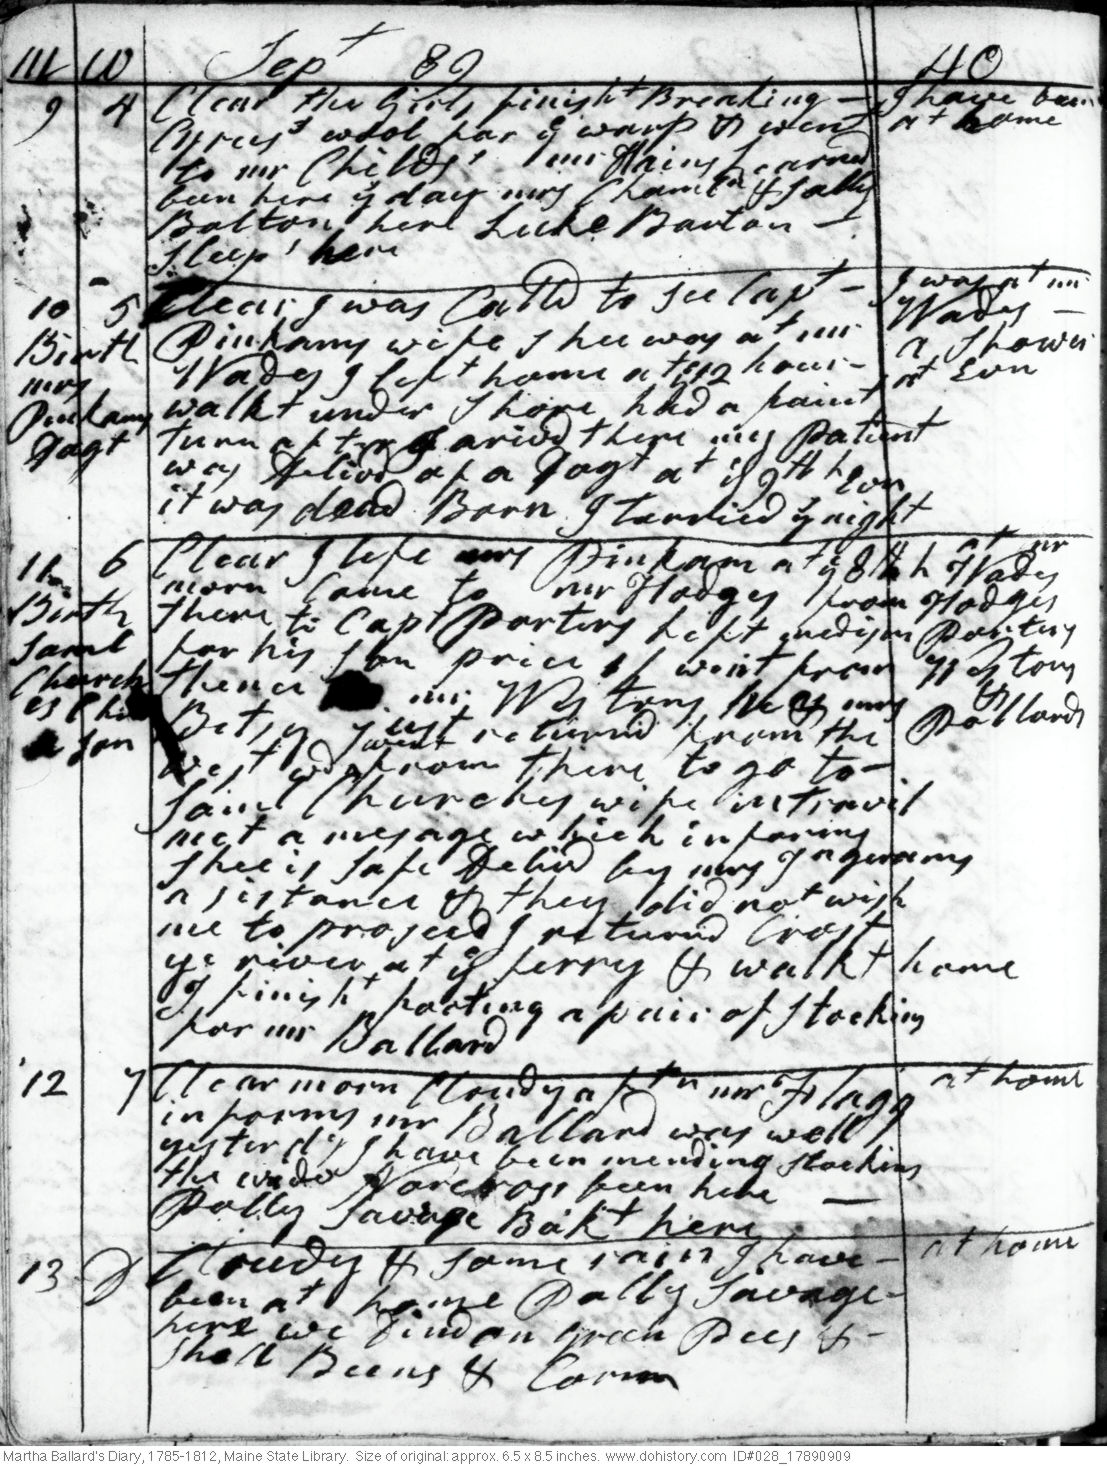 M W Sept 89 40
9 4 Clear the Girls finisht Breaking – I have been
Cyrus's wool for ye warp & went at home
to mr Childs's mr Hains Learned
been here ys day mrs Chamln & Sally
Bolton here Luke Barton –
Sleept here
10 5 Clear. I was Calld to see Capt – I was at mr
Birth Pinkams wife Shee was at mr Wades –
mrs Wades I left home at 12 hour – a Shower
Pinkams walkt under Shore had a faint at Evn
Dagt turn after I arivd there my Patient
was Delivd of a Dagt at ye 9th h Evn
it was dead Born I tarried ye night
11 6 Clear I left mrs Pinkam at ye 8th h at mr Wades
Birth morn Came to mr Hodges from Hodges
Saml there to Capt Porters left medisin Porters
Church for his son price 1/ went from Westons
es Chi thence mr Westons he & mrs & Pollards
a son Betsy just returnd from the
west went from there to go to –
Saml Churches wife in Travil
met a mesage which informs
Shee is safe Delivd by mrs Ingerams
asistance & they did not wish
me to proseed I returnd Crost
ye river at ye ferry & walkt home
I finisht footing a pair of Stockins
for mr Ballard
12 7 Clear morn Cloudy aftn mr Flagg at home
informs mr Ballard was well
yesterdy I have been mending Stockins
the widw Norcross been here –
Polly Savage Bakt here
13 D Cloudy & some rain I have – at home
been at home Polly Savage –
here we dind on green Pees & –
Shell Beens & Corn
Martha Ballard's Diary, 1785-1812, Maine State Library. Size of original: approx. 6.5 x 8.5 inches. www.dohistory.com ID#028_17890909